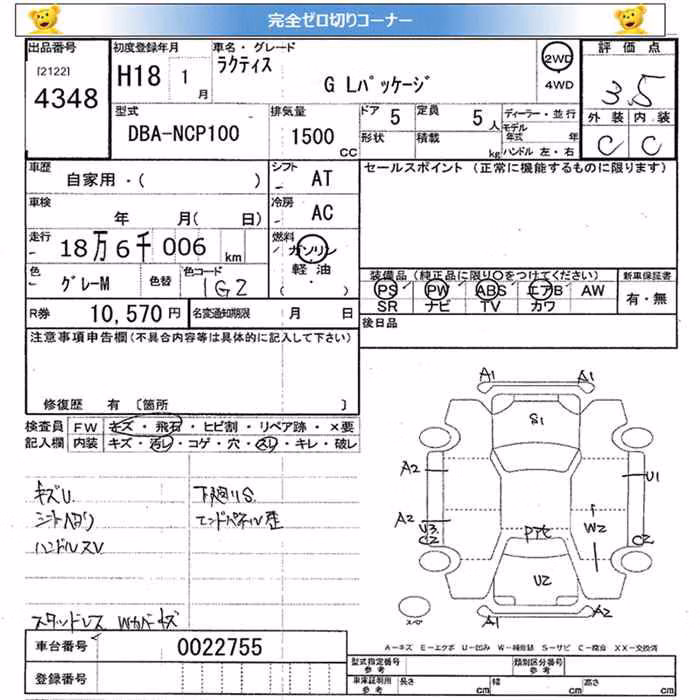 完全ゼロ切りコーナー
出品番号 初度登録年月 車名・グレード 評価点
[2122] 4348
H18 1月
ラクティス
G Lパッケージ
2WD
4WD
3.5
型式 DBA-NCP100
排気量 1500 CC
ドア 5 定員 5人
形状 積載 kg
ディーラー・並行
モデル年式 年
ハンドル 左・右
外装 内装
C C
車歴 自家用・( )
シフト AT
セールスポイント (正常に機能するものに限ります)
車検 年 月( 日)
冷房 AC
走行 18万6千006 km
燃料 ガソリン
軽油
( ・ )
色 グレーM 色替 色コード 1G2
装備品(純正品に限り○をつけてください) 新車保証書
PS PW ABS エアB AW 有・無
SR ナビ TV カワ
R券 10,570円 名変通知期限 月 日
後日品
注意事項申告欄(不具合内容等は具体的に記入して下さい)
修復歴 有 [箇所 ]
検査員 FW キズ・飛石・ヒビ割・リペア跡・×要
記入欄 内装 キズ・汚レ・コゲ・穴・スレ・キレ・破レ
キズU. 下廻りS.
シートヘタリ エンドパネル歪
ハンドルスレ
スタッドレス Wカバーキズ
A1 A1
S1
A2 U1
A2 U3 C2 W2 C2
PTモ
U2
スペ A1 A2
A-キズ E-エクボ U-凹み W-補修跡 S-サビ C-腐食 XX-交換済
車台番号 0022755
登録番号
型式指定番号 参考 類別区分番号 参考
車庫証明用 参考 長さ cm 幅 cm 高さ cm